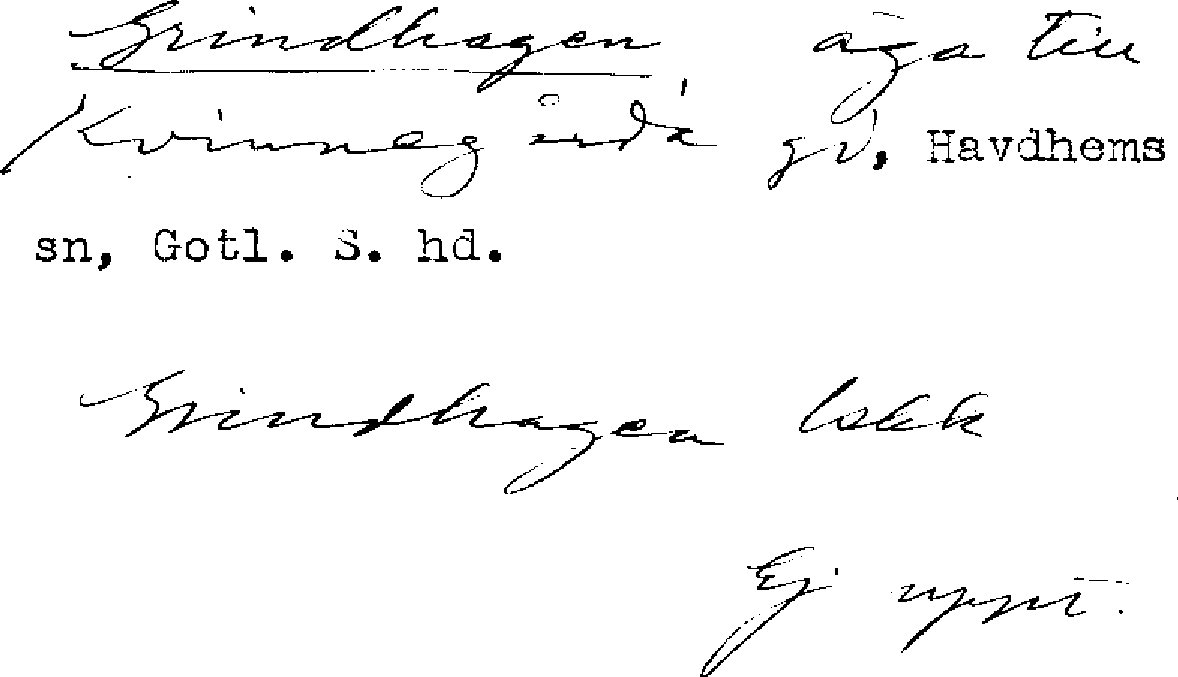 Grindhagen äga till
Kvinnegårda gd, Havdhems
sn, Gotl. S. hd.
Grindhagen Lskk
Ej uppt.